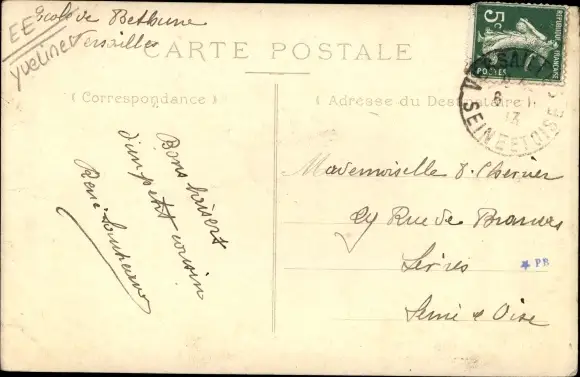 École de Bethune
Versailles
EE
Yvelines
CARTE POSTALE
(Correspondance)
(Adresse du Destinataire)
5c
REPUBLIQUE FRANÇAISE
POSTES
VERSAILLES
8
13
SEINE ET OISE
Bons baisers
d'un petit cousin
René
Mademoiselle J. Chevrier
24 Rue de Brancas
Sèvres
Seine & Oise
PB